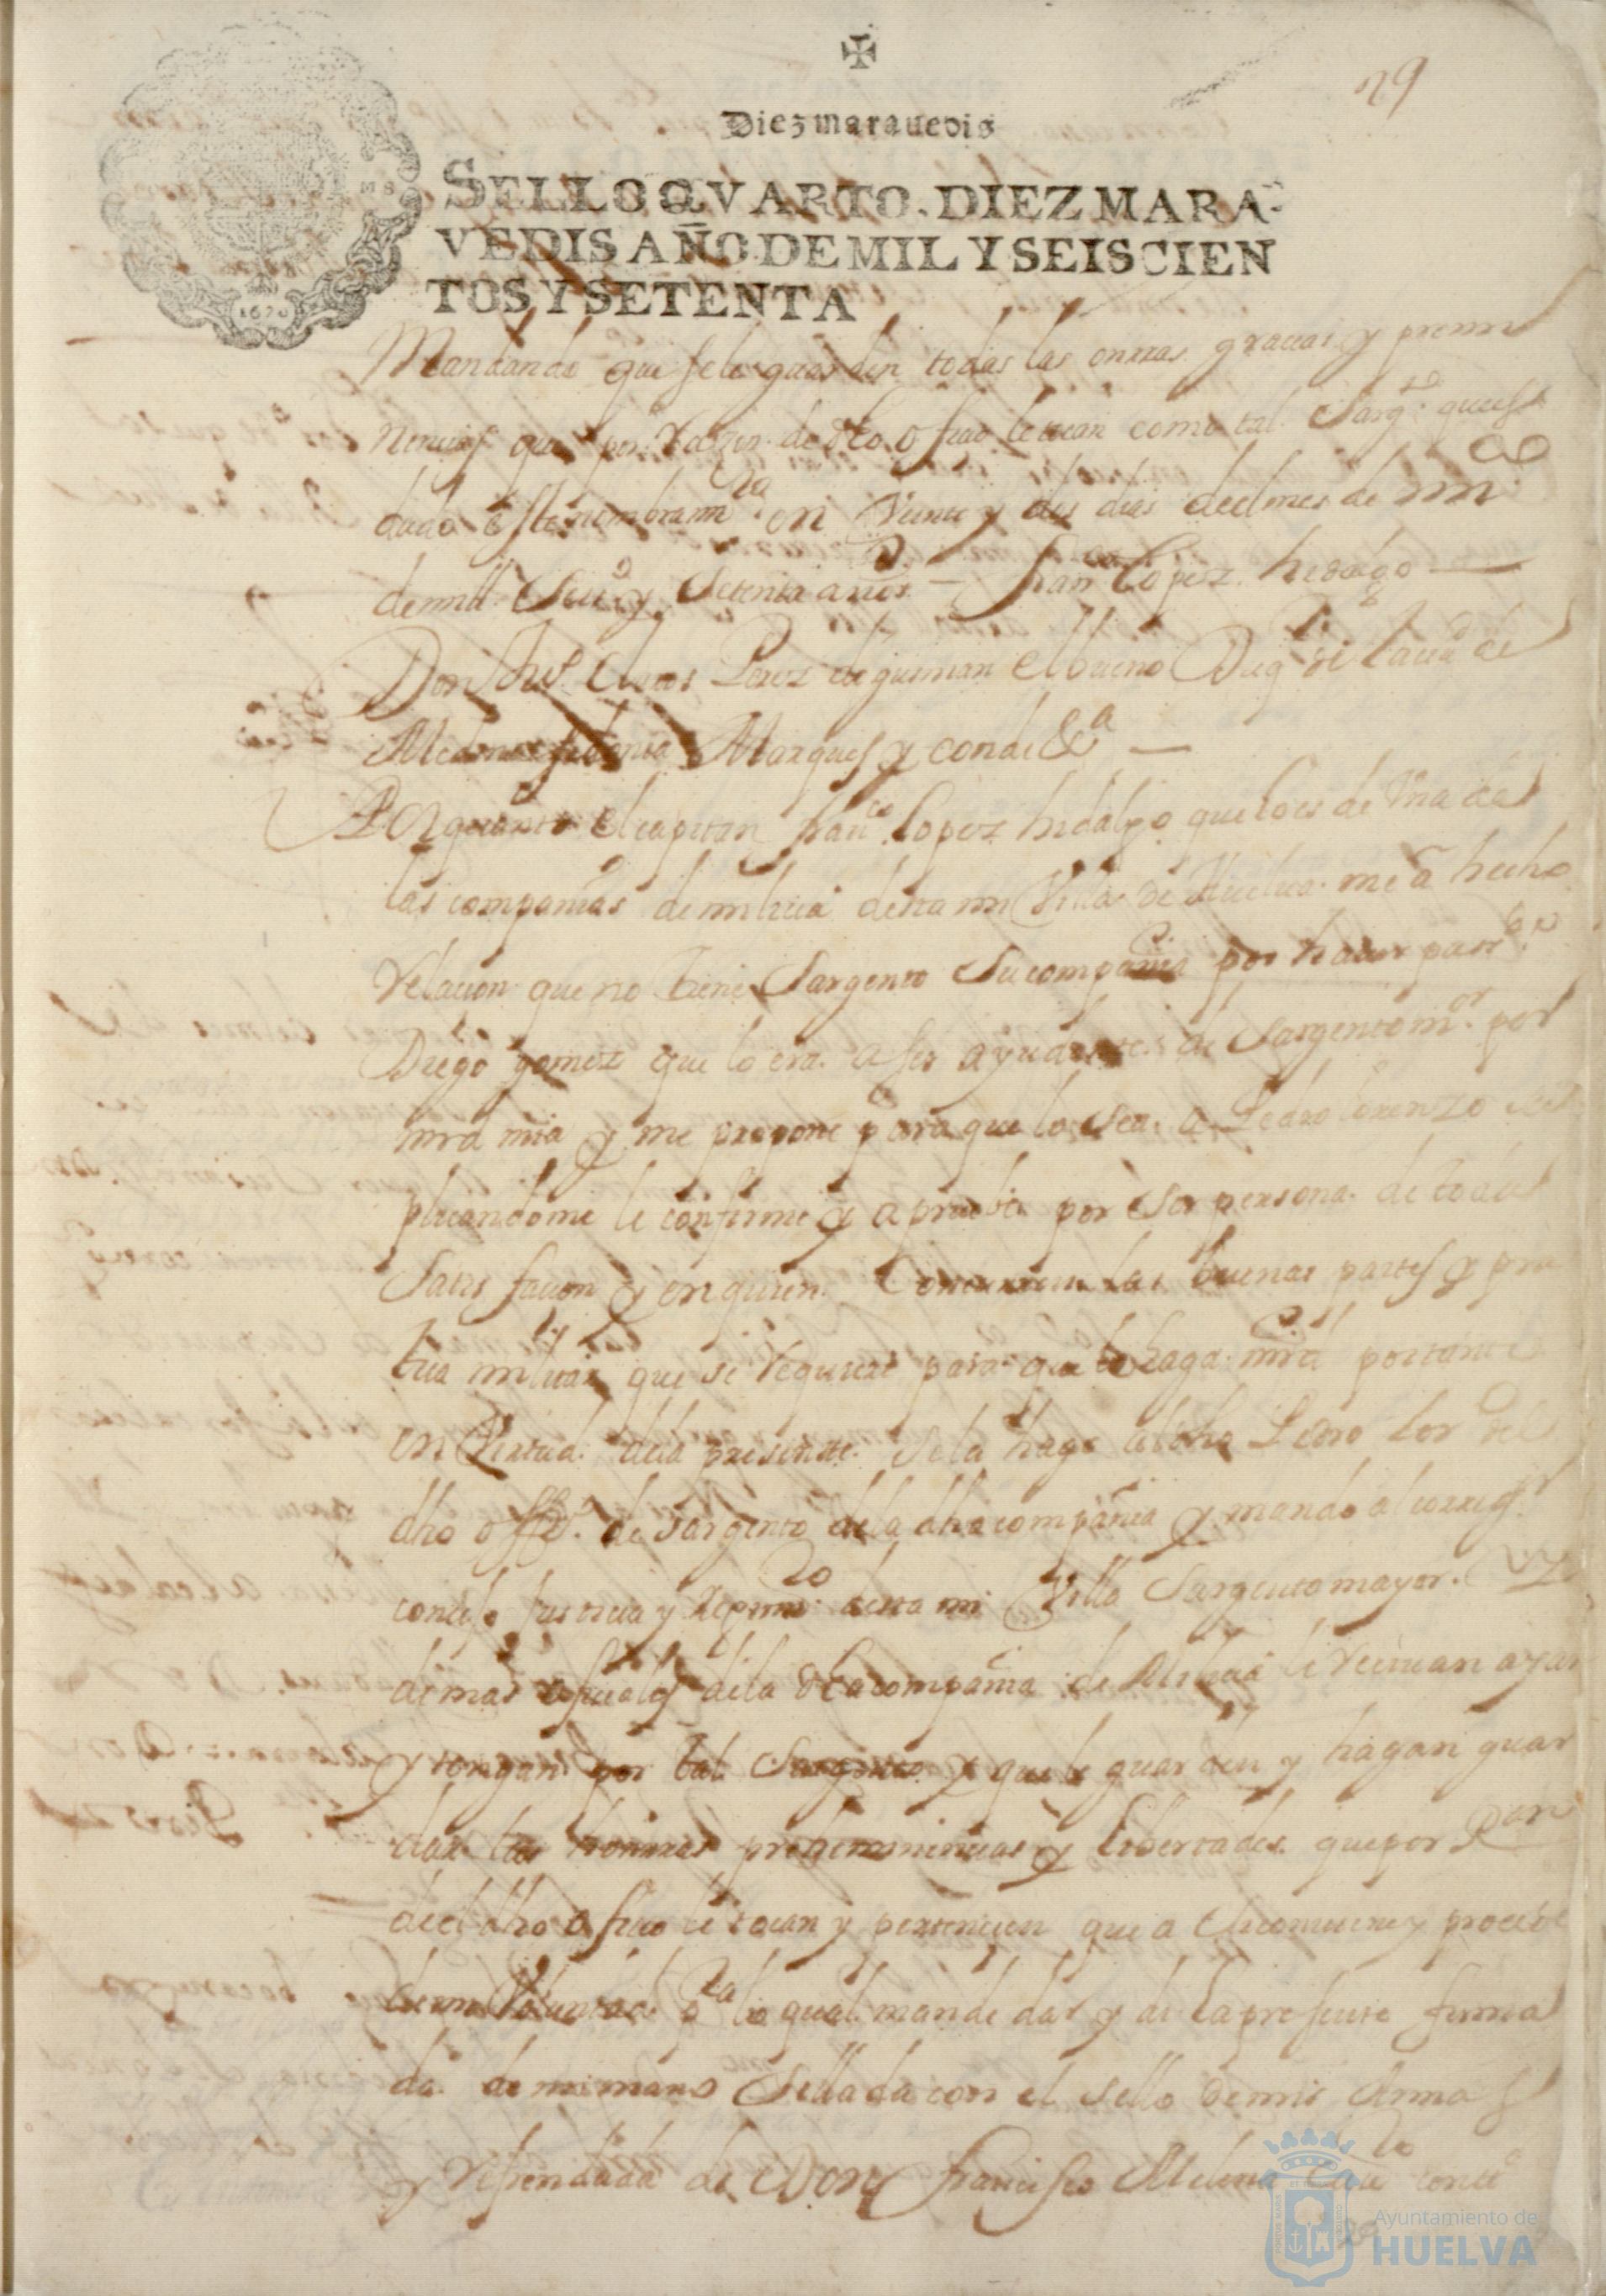 29
Diez maravedis
SELLO QVARTO. DIEZ MARA-
VEDIS AÑO DE MIL Y SEISCIEN
TOS Y SETENTA
1670
Mandando que se le guarden todas las onrras gracias y premi
nencias que por Razon de dho ofiao le tocan como tal Sargto ques
dado este nombramto en Veinte y dos dias del mes de
de mill Seisos y Setenta años — franco Lopez hidalgo —
Don Perez de guzman el bueno Duq de la ciud de
Medina Sidonia Marques y conde &a —
Por quanto el capitan franco Lopez hidalgo que lo es de Vna de
las compañias de milicia desta mi Villa de Huelva me a hecho
Relacion que no tiene Sargento Su compañia por haver pasdo
Diego gomez que lo era a ser ayudante de Sargento mor por
mrd mia y me propone para que lo sea a Pedro lorenzo
plicandome le confirme y aprueve por ser persona de toda
Satisfacion y en quien Concurren las buenas partes y pra
tica militar que se Requiere para que le haga mrd por tanto
en Virtud de la presente se la hago al dho Pedro Lor del
dho offo de Sargento de la dha compañia y mando al corregor
consejo Justicia y Regimto desta mi Villa Sargento mayor y
demas ofiales de la dha compañia de Milicia le Recivan ayan
y tengan por tal Sargento y que le guarden y hagan guar
dar las honrras preheminencias y libertades que por Ron
de el dho ofiao le tocan y pertenecen que a Si conviene y procede
de mi Voluntad pa lo qual mande dar y di la presente firma
da de mi mano Sellada con el sello de mis Armas
y Refrendada de Don Francisco Molina
Ayuntamiento de
HUELVA